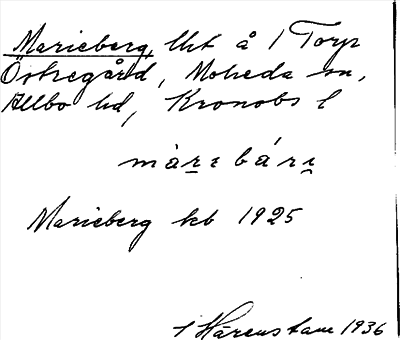 Marieberg, lht å 1 Torp
Östregård, Moheda sn,
Allbo hd, Kronobs l
màrɛbárɩ
Marieberg kb 1925
Härenstam 1936